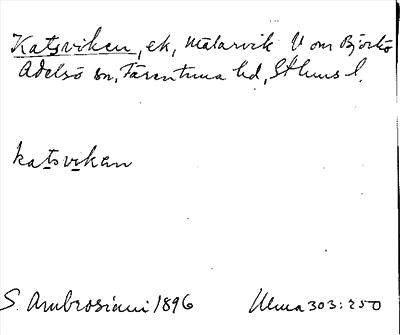 Katsviken, ek, Mälarvik V om Björkö
Adelsö sn, Färentuna hd, Sthlms l.
katsvikən
S. Ambrosiani 1896 Ulma 303:250